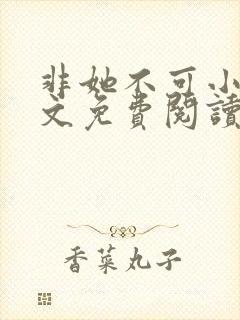 非她不可小
文免費閱讀
香菜丸子